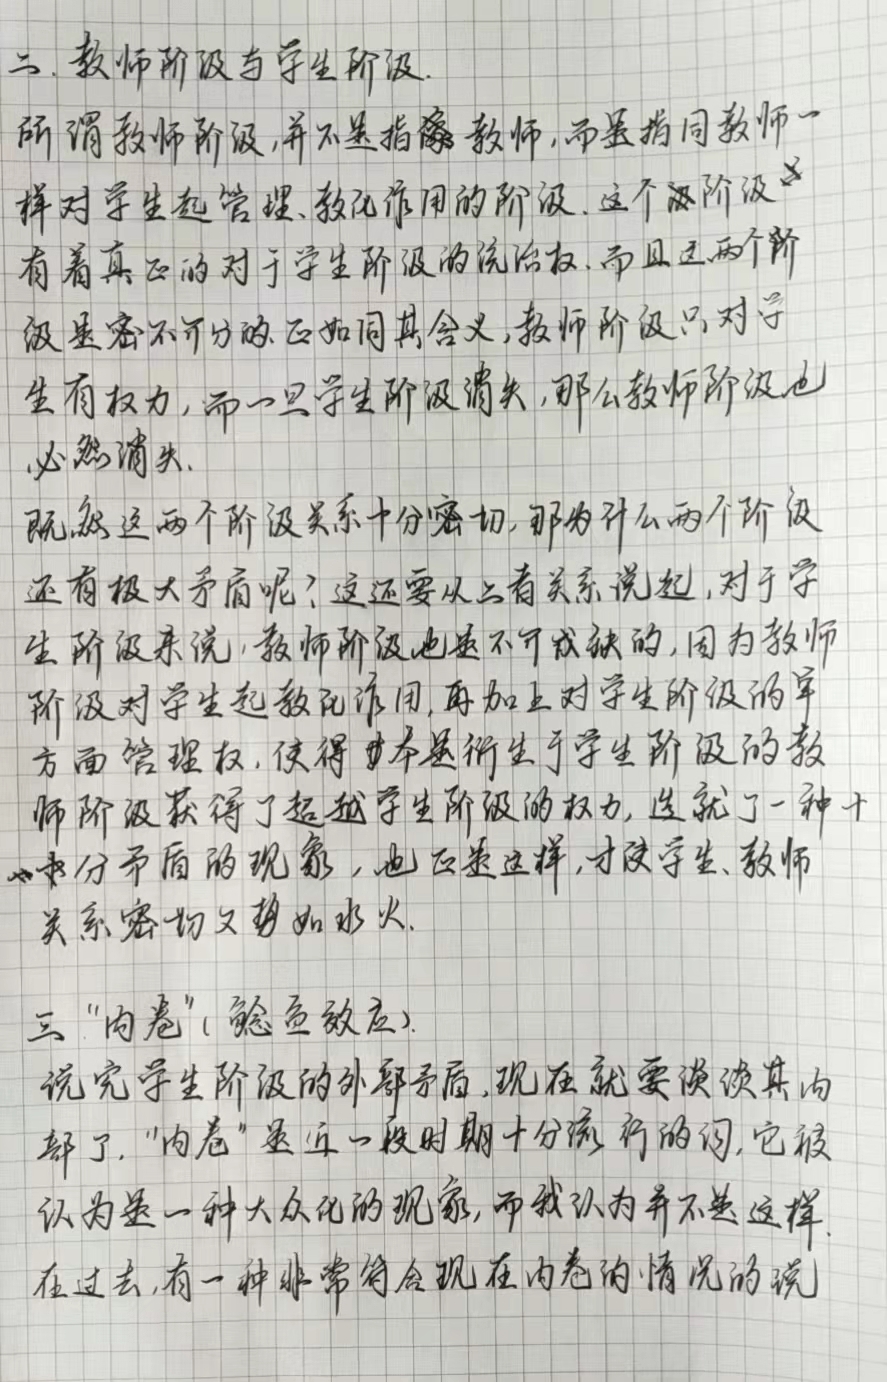 二.教师阶级与学生阶级.
所谓教师阶级,并不是指教师,而是指同教师一
样对学生起管理、教化作用的阶级.这个阶级
有着真正的对于学生阶级的统治权.而且这两个阶
级是密不可分的.正如同其含义,教师阶级只对学
生有权力,而一旦学生阶级消失,那么教师阶级也
必然消失.
既然这两个阶级关系十分密切,那为什么两个阶级
还有极大矛盾呢?这还要从二者关系说起,对于学
生阶级来说,教师阶级也是不可或缺的,因为教师
阶级对学生起教化作用,再加上对学生阶级的单
方面管理权,使得本是衍生于学生阶级的教
师阶级获得了超越学生阶级的权力,造就了一种十
分矛盾的现象,也正是这样,才使学生、教师
关系密切又势如水火.
三"内卷"(鲶鱼效应).
说完学生阶级的外部矛盾,现在就要谈谈其内
部了."内卷"是近一段时期十分流行的词,它被
认为是一种大众化的现象,而我认为并不是这样.
在过去,有一种非常符合现在内卷的情况的说